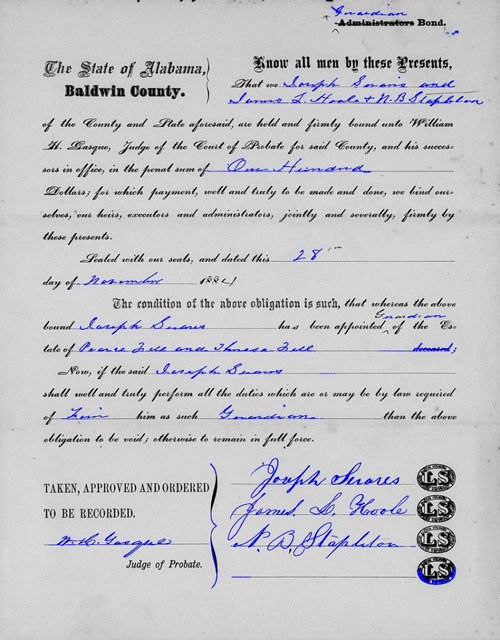 Guardian
Administrators Bond.
The State of Alabama,
Baldwin County.
Know all men by these Presents,
That we Joseph Suares and
James L Hoole & N. B Stapleton
of the County and State aforesaid, are held and firmly bound unto William
H. Gasque, Judge of the Court of Probate for said County, and his succes-
sors in office, in the penal sum of One Hundred
Dollars; for which payment, well and truly to be made and done, we bind our-
selves, our heirs, executors and administrators, jointly and severally, firmly by
these presents.
Sealed with our seals, and dated this 28th
day of November 1884
The condition of the above obligation is such, that whereas the above
Guardian
bound Joseph Suares has been appointed of the Es-
tate of and Theresa deceased;
Now, if the said Joseph Suares
shall well and truly perform all the duties which are or may be by law required
of him him as such Guardian than the above
obligation to be void; otherwise to remain in full force.
TAKEN, APPROVED AND ORDERED
TO BE RECORDED.
W. H. Gasque
Judge of Probate.
Joseph Suares LS
James L. Hoole LS
N. B. Stapleton LS
LS